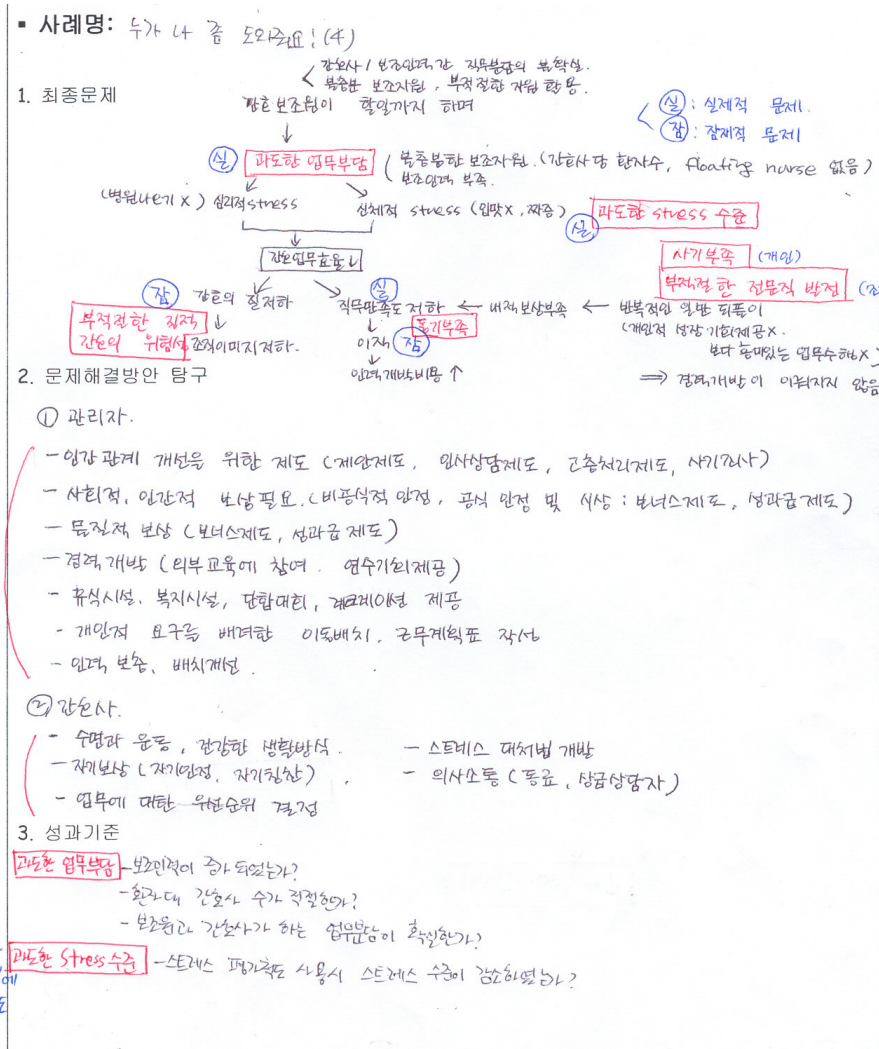 ▪ 사례명: 누가 나 좀 도와줘요! (4)
간호사 / 보조인력간 직무분담의 불확실.
불충분 보조자원, 부적절한 자원 활용.
1. 최종문제
간호보조원이 할일까지 하며
실 : 실제적 문제.
잠 : 잠재적 문제
실 과도한 업무부담 불충분한 보조자원. (간호사당 환자수, floating nurse 없음)
보조인력 부족.
(병원나가기 X) 심리적 stress 신체적 stress (입맛X, 짜증) 실 과도한 stress 수준
간호업무효율↓
사기부족 (개인)
부적절한 전문직 발전
잠 간호의 질저하 실 직무만족도 저하 ← 내적보상부족 ← 반복적인 일만 되풀이
부적절한 질적 간호의 위험성 동기부족 (개인적 성장 기회제공X.
조직이미지저하. 이직 잠 보다 흥미있는 업무수행X)
인력개발비용 ↑ ⇒ 경력개발이 이뤄지지 않음
2. 문제해결방안 탐구
① 관리자.
- 인간관계 개선을 위한 제도 (제안제도, 인사상담제도, 고충처리제도, 사기조사)
- 사회적, 인간적 보상필요. (비공식적 인정, 공식 인정 및 시상 : 보너스제도, 성과급제도)
- 물질적 보상 (보너스제도, 성과급제도)
- 경력개발 (외부교육에 참여. 연수기회제공)
- 휴식시설, 복지시설, 단합대회, 레크레이션 제공
- 개인적 요구를 배려한 이동배치, 근무계획표 작성
- 인력 보충, 배치개선.
② 간호사.
- 수면과 운동, 건강한 생활방식. - 스트레스 대처법 개발
- 자기보상 (자기인정, 자기칭찬). - 의사소통 (동료, 상급상담자)
- 업무에 대한 우선순위 결정
3. 성과기준
과도한 업무부담 - 보조인력이 증가 되었는가?
- 환자대 간호사 수가 적절한가?
- 보조원과 간호사가 하는 업무분담이 확실한가?
과도한 stress 수준 - 스트레스 평가척도 사용시 스트레스 수준이 감소하였는가?
에
도